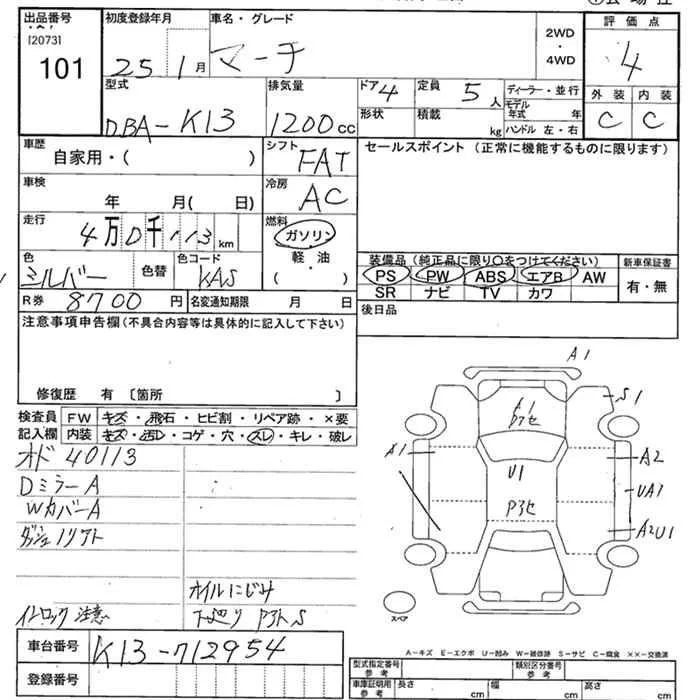 出品番号 初度登録年月 車名・グレード 2WD・4WD 評価点
[2073]
101 25 1月 マーチ 4
型式 排気量 ドア4 定員 5人 ディーラー・並行 外装 内装
DBA-K13 1200cc 形状 積載 kg モデル年式 年 C C
ハンドル 左・右
車歴 シフト セールスポイント(正常に機能するものに限ります)
自家用・( ) FAT
車検 冷房
年 月( 日) AC
走行 燃料
4万0千113km ガソリン
色 色替 色コード 軽・油 装備品(純正品に限り○をつけてください) 新車保証書
シルバー KAS ( ) PS PW ABS エアB AW 有・無
R券 8700円 名変通知期限 月 日 SR ナビ TV カワ
注意事項申告欄(不具合内容等は具体的に記入して下さい) 後日品
修復歴 有 〔箇所 〕
検査員 FW キズ・飛石・ヒビ割・リペア跡・×要
記入欄 内装 キズ・汚レ・コゲ・穴・スレ・キレ・破レ
オド 40113
DミラーA
WカバーA
オイルにじみ
注意 下廻り
A1
S1
A1
A1
A2
U1
UA1
A2U1
スペア
車台番号 K13-712954
登録番号
A－キズ E－エクボ U－凹み W－補修跡 S－サビ C－腐食 ××－交換済
型式指定番号 参考 類別区分番号 参考
車庫証明用 参考 長さ cm 幅 cm 高さ cm